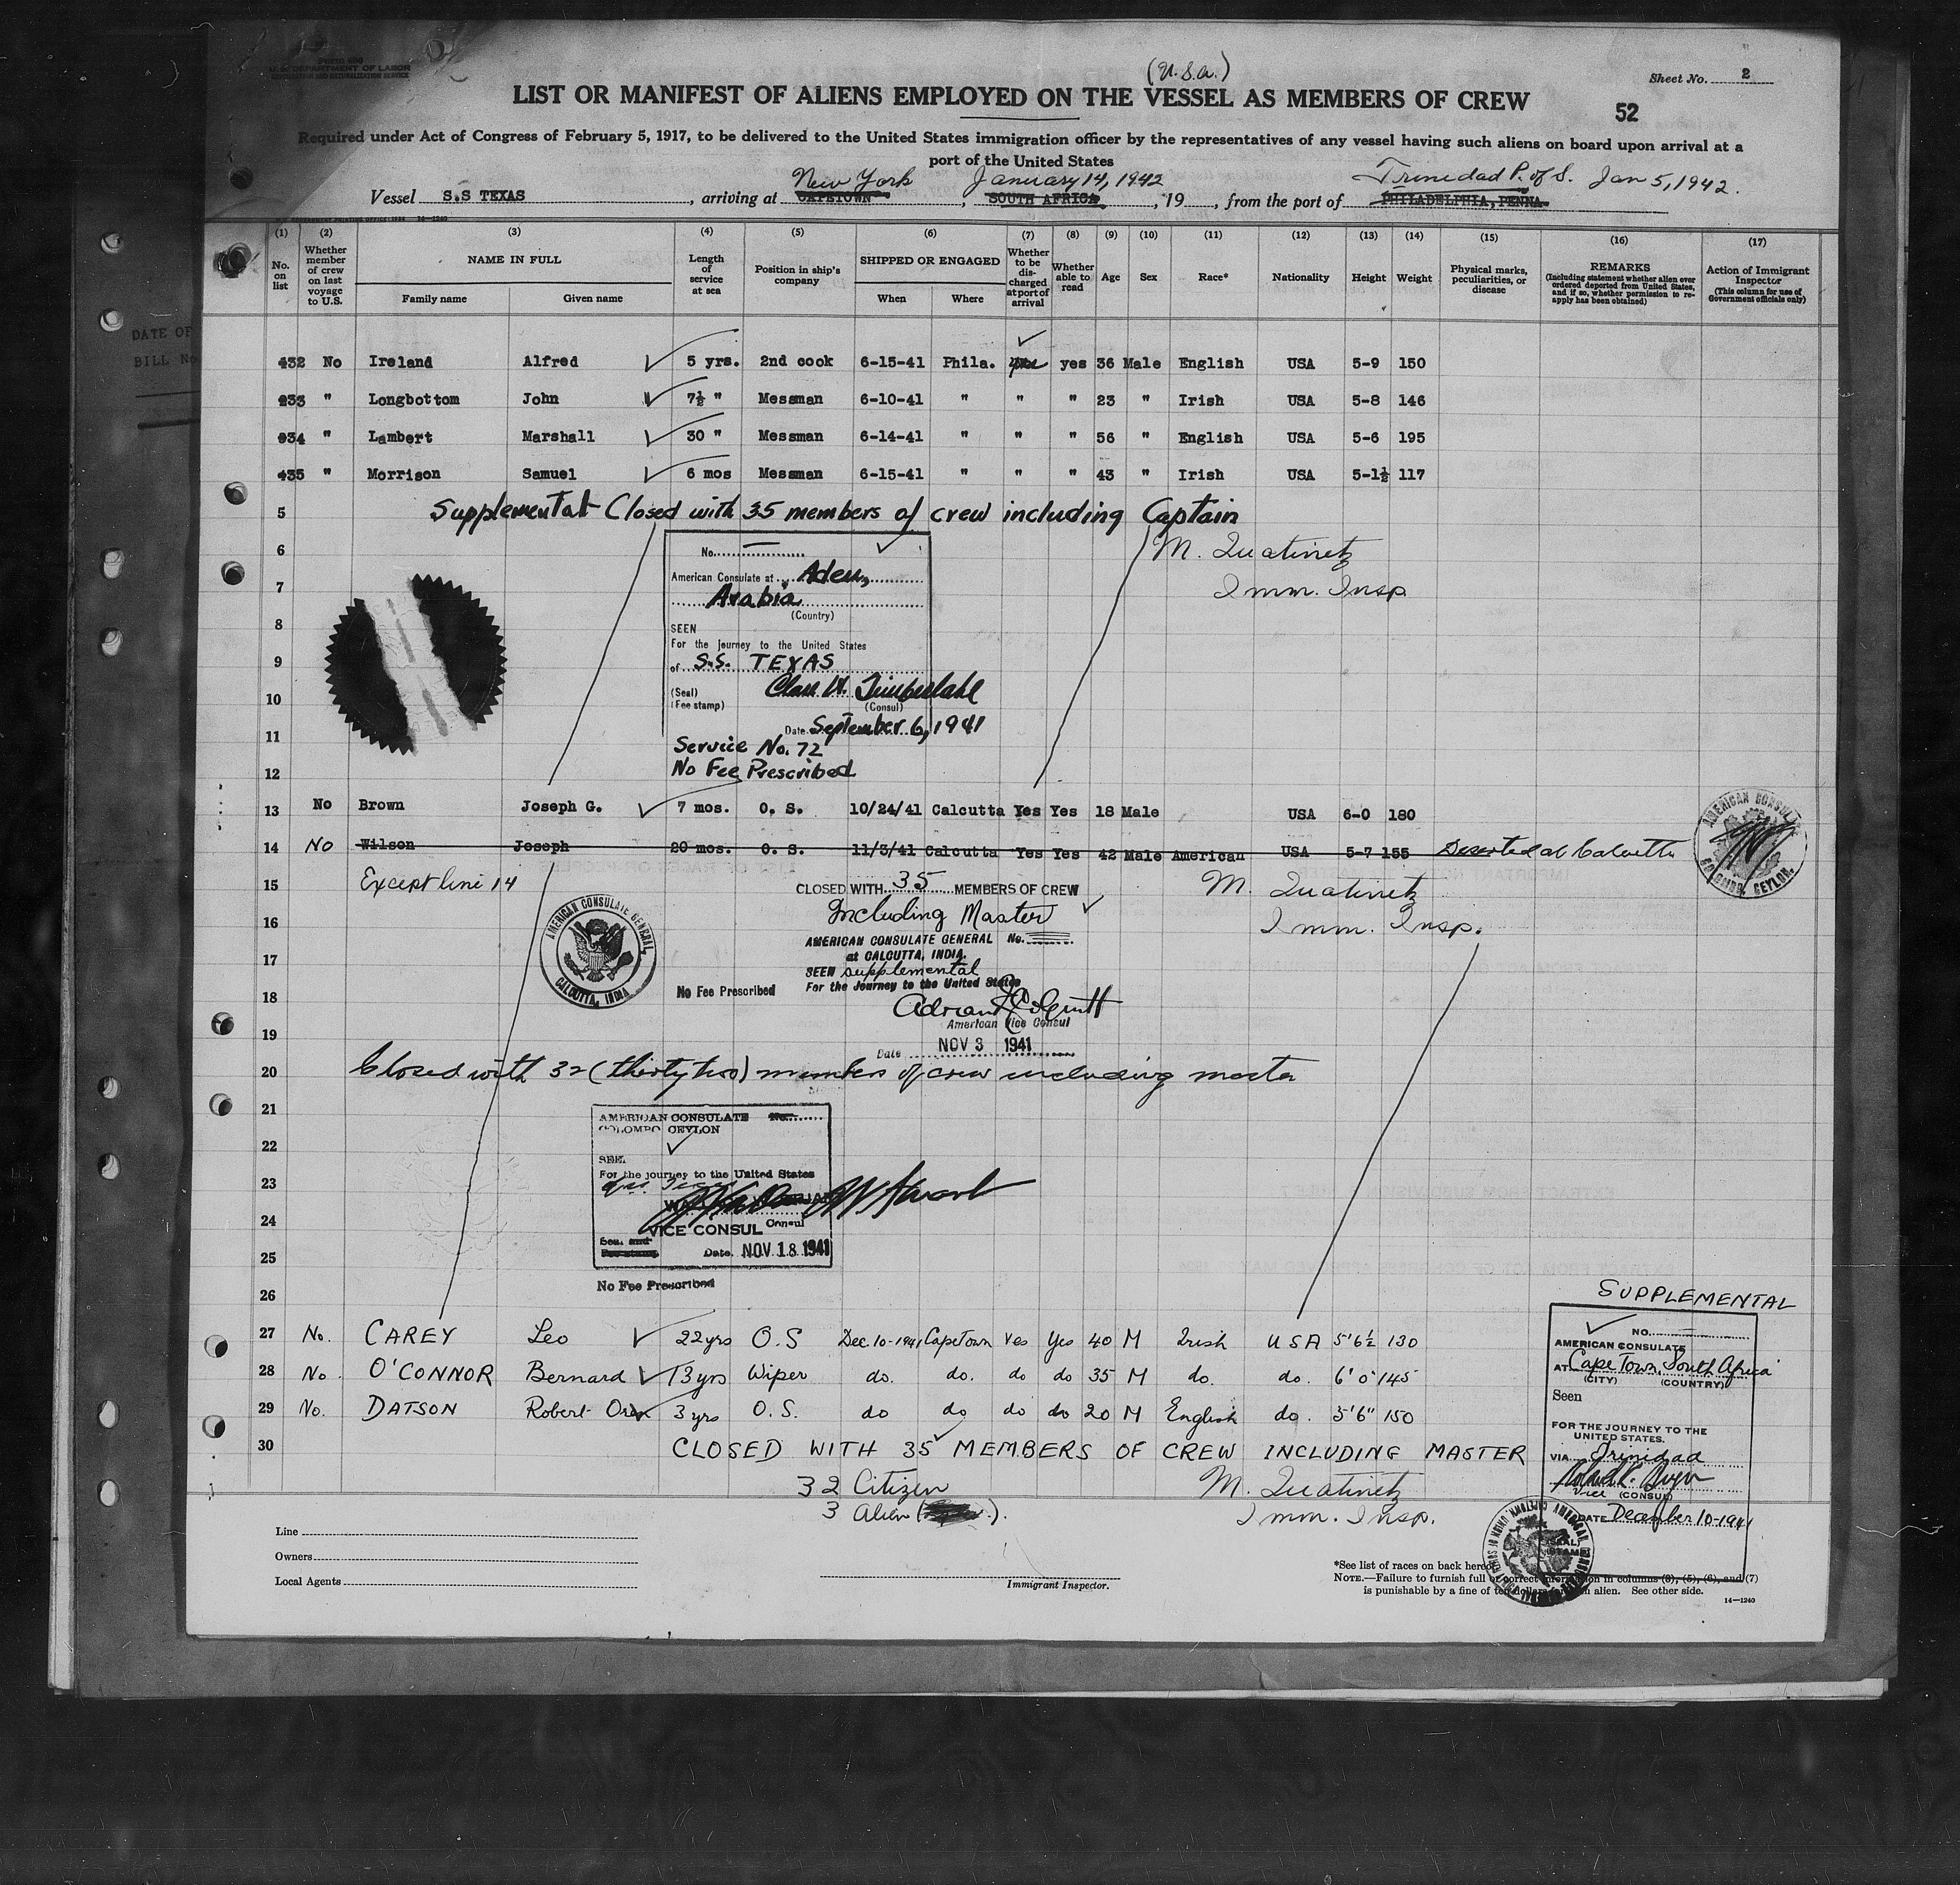 Form 680
U. S. DEPARTMENT OF LABOR
IMMIGRATION AND NATURALIZATION SERVICE
(U.S.A.)
Sheet No. 2
LIST OR MANIFEST OF ALIENS EMPLOYED ON THE VESSEL AS MEMBERS OF CREW
52
Required under Act of Congress of February 5, 1917, to be delivered to the United States immigration officer by the representatives of any vessel having such aliens on board upon arrival at a
port of the United States
New York January 14, 1942 Trinidad P. of S. Jan 5, 1942.
Vessel S.S TEXAS, arriving at CAPETOWN, SOUTH AFRICA, 19, from the port of PHILADELPHIA, PENNA.
14—1240
(1) (2) (3) (4) (5) (6) (7) (8) (9) (10) (11) (12) (13) (14) (15) (16) (17)
No. on list
Whether member of crew on last voyage to U.S.
NAME IN FULL
Family name Given name
Length of service at sea
Position in ship's company
SHIPPED OR ENGAGED
When Where
Whether to be discharged at port of arrival
Whether able to read
Age
Sex
Race*
Nationality
Height
Weight
Physical marks, peculiarities, or disease
REMARKS
(Including statement whether alien ever ordered deported from United States, and if so, whether permission to re-apply has been obtained)
Action of Immigrant Inspector
(This column for use of Government officials only)
DATE OF
BILL No
432 No Ireland Alfred 5 yrs. 2nd cook 6-15-41 Phila. yes 36 Male English USA 5-9 150
233 " Longbottom John 7½ " Messman 6-10-41 " " " 23 " Irish USA 5-8 146
934 " Lambert Marshall 30 " Messman 6-14-41 " " " 56 " English USA 5-6 195
435 " Morrison Samuel 6 mos Messman 6-15-41 " " " 43 " Irish USA 5-1½ 117
5 Supplemental Closed with 35 members of crew including Captain
6 M. Quatinetz
7 Imm. Insp.
No.
American Consulate at Aden,
Arabia
(Country)
8 SEEN
For the journey to the United States
9 of S.S. TEXAS
10 (Seal) Clare H. Timberlake
(Fee stamp) (Consul)
11 Date September 6, 1941
Service No. 72
12 No Fee Prescribed
13 No Brown Joseph G. 7 mos. O. S. 10/24/41 Calcutta Yes Yes 18 Male USA 6-0 180
14 No Wilson Joseph 20 mos. O. S. 11/3/41 Calcutta Yes Yes 42 Male American USA 5-7 155 Deserted at Calcutta
AMERICAN CONSULATE COLOMBO, CEYLON.
15 Except line 14 CLOSED WITH 35 MEMBERS OF CREW M. Quatinetz
16 Including Master Imm. Insp.
AMERICAN CONSULATE GENERAL No.
17 at CALCUTTA, INDIA.
SEEN supplemental
For the Journey to the United States
AMERICAN CONSULATE GENERAL, CALCUTTA, INDIA
18 No Fee Prescribed
19 American Vice Consul
Date NOV 3 1941
20 Closed with 32 (thirty two) members of crew including master
21 AMERICAN CONSULATE No.
COLOMBO CEYLON
22 SEEN
For the journey to the United States
23
24 VICE CONSUL Consul
25 Date. NOV. 18 1941
No Fee Prescribed
26 SUPPLEMENTAL
27 No. CAREY Leo 22yrs O.S Dec 10-1941 CapeTown Yes Yes 40 M Irish USA 5'6½ 130
28 No. O'CONNOR Bernard 13yrs Wiper do. do. do do 35 M do. do. 6'0" 145
29 No. DATSON Robert 3 yrs O.S. do do do do 20 M English do. 5'6" 150
30 CLOSED WITH 35 MEMBERS OF CREW INCLUDING MASTER
32 Citizen M. Quatinetz
3 Alien Imm. Insp.
NO.
AMERICAN CONSULATE
AT Cape Town, South Africa
(CITY) (COUNTRY)
Seen
FOR THE JOURNEY TO THE
UNITED STATES.
VIA Trinidad
Vice (CONSUL)
DATE December 10-1941
Line
Owners
Local Agents
Immigrant Inspector.
*See list of races on back hereof
NOTE.—Failure to furnish full or correct information in columns (3), (5), (6), and (7)
is punishable by a fine of ten dollars for each alien. See other side.
14—1240